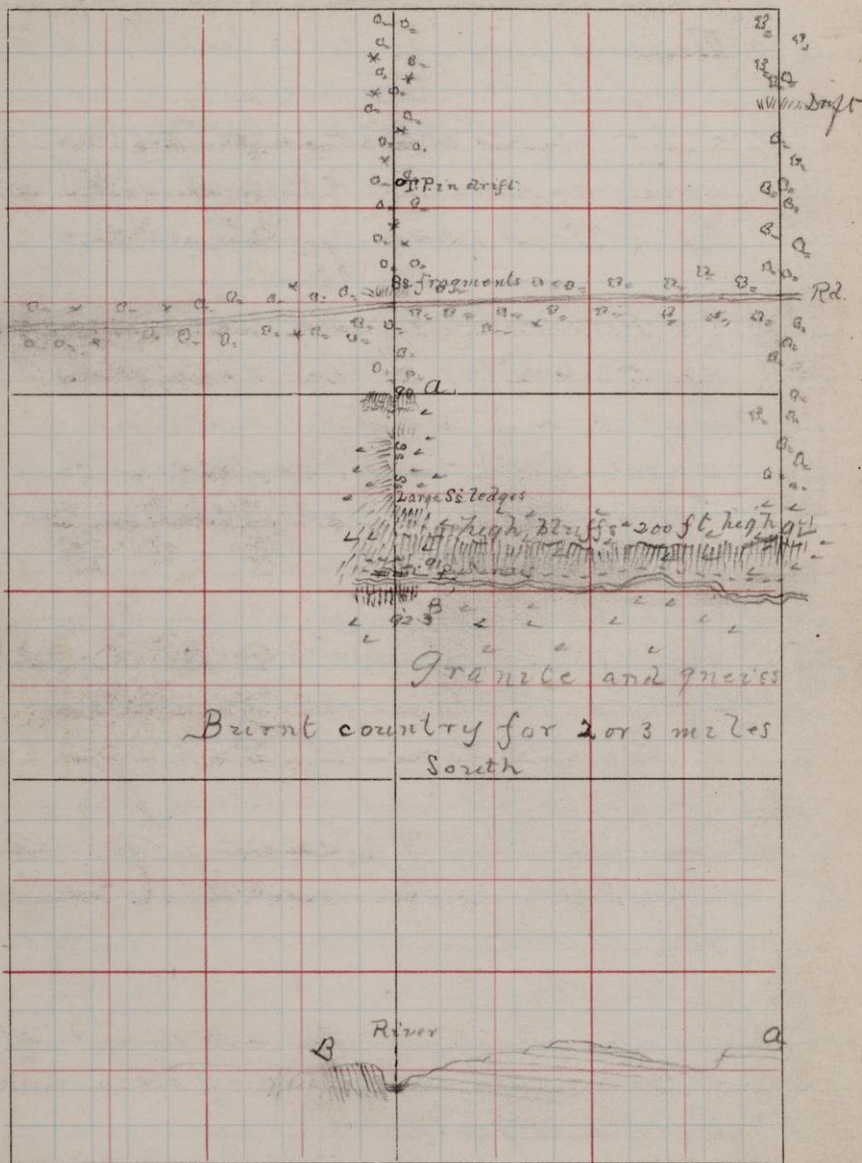 Drift
T.P. in drift
Ss fragments
Rd.
90 a.
Ss
Ss
Large Ss ledges
high bluffs 200 ft. high
91
B
923
Granite and gneiss
Burnt country for 2 or 3 miles
South
River
B
a